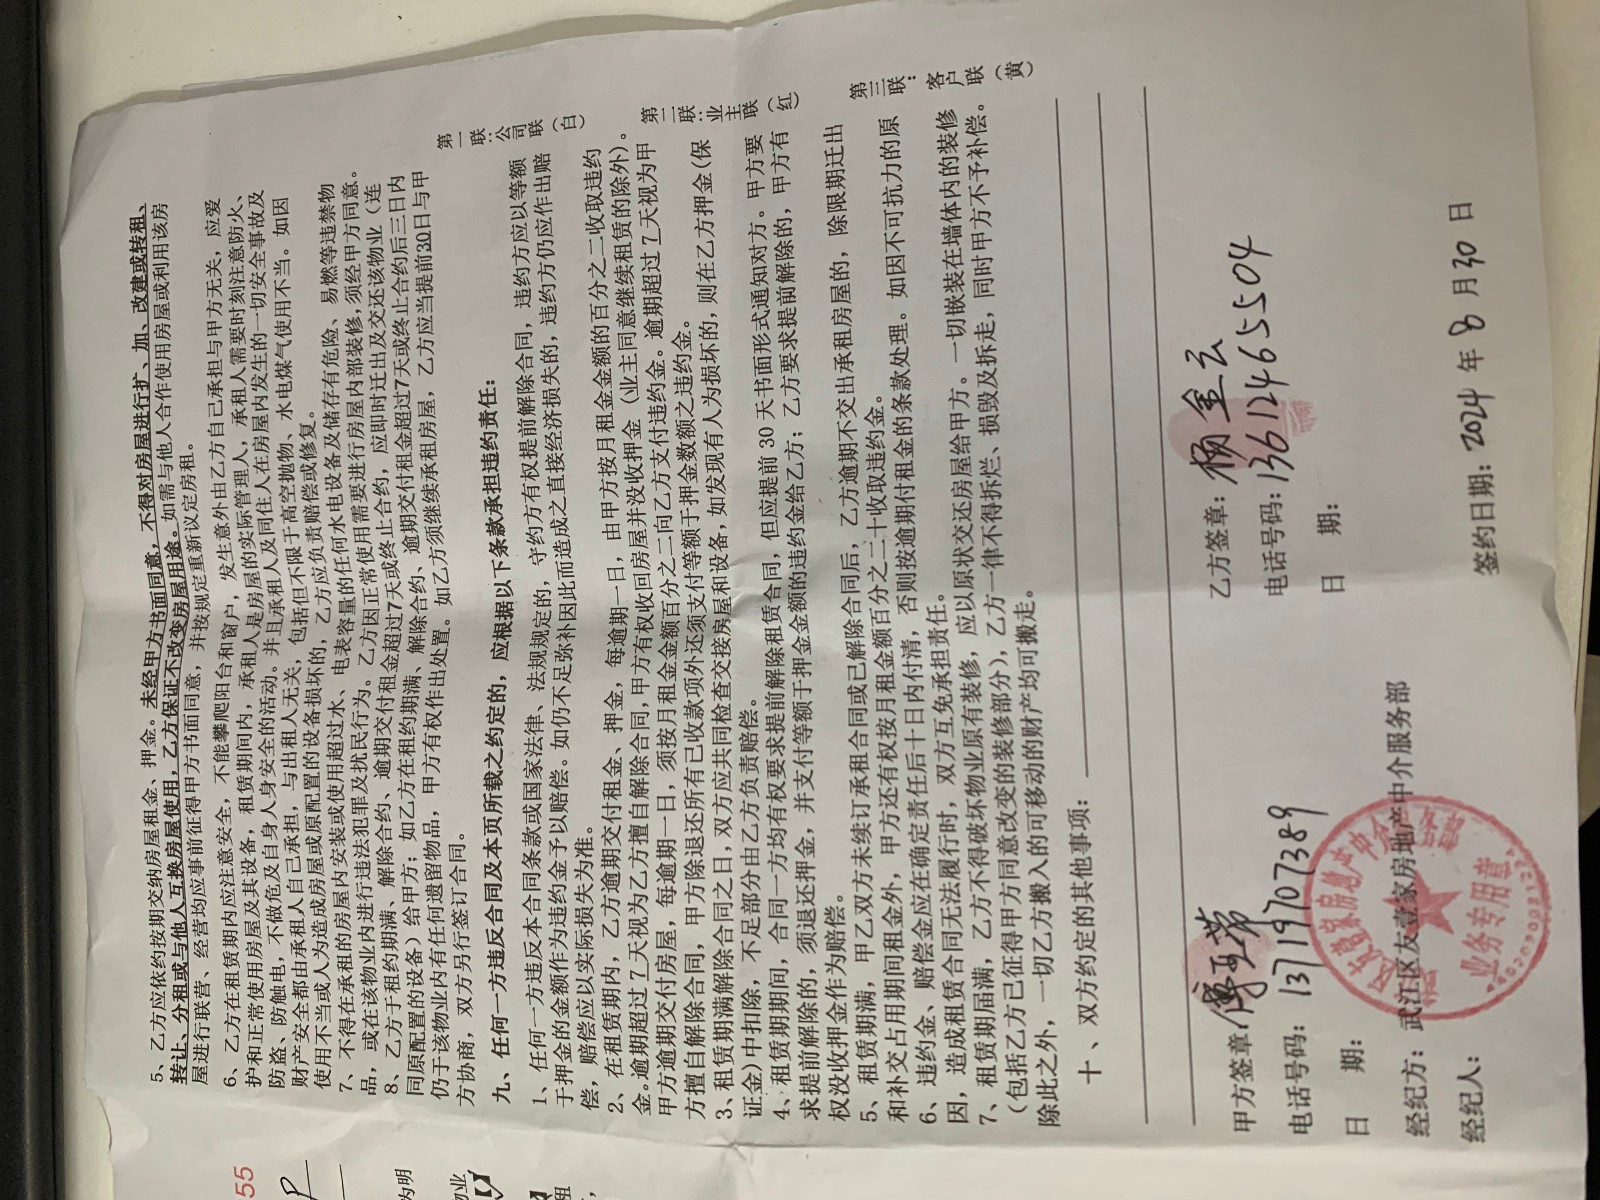 5、乙方应依约按期交纳房屋租金、押金。未经甲方书面同意，不得对房屋进行扩、加、改建或转租、
转让、分租或与他人互换房屋使用，乙方保证不改变房屋用途。如需与他人合作使用房屋或利用该房
屋进行联营、经营均应事前征得甲方书面同意，并按规定重新议定房租。
6、乙方在租赁期内应注意安全，不能攀爬阳台和窗户，发生意外由乙方自己承担与甲方无关，应爱
护和正常使用房屋及其设备，租赁期间内，承租人是房屋的实际管理人，承租人需要时刻注意防火、
防盗、防触电，不做危及自身人身安全的活动。并且承租人及同住人在房屋内发生的一切安全事故及
财产安全都由承租人自己承担，与出租人无关，包括但不限于高空抛物、水电煤气使用不当。如因
使用不当或人为造成房屋或原配置的设备损坏的，乙方应负责赔偿或修复。
7、不得在承租的房屋内安装或使用超过水、电表容量的任何水电设备及储存有危险、易燃等违禁物
品，或在该物业内进行违法犯罪及扰民行为。乙方因正常使用需要进行房屋内部装修，须经甲方同意。
8、乙方于租约期满、解除合约、逾期交付租金超过7天或终止合约，应即时迁出及交还该物业（连
同原配置的设备）给甲方；如乙方在租约期满、解除合约、逾期交付租金超过7天或终止合约后三日内
仍于该物业内有任何遗留物品，甲方有权作出处置。如乙方须继续承租房屋，乙方应当提前30日与甲
方协商，双方另行签订合同。
九、任何一方违反合同及本页所载之约定的，应根据以下条款承担违约责任：
1、任何一方违反本合同条款或国家法律、法规规定的，守约方有权提前解除合同，违约方应以等额
于押金的金额作为违约金予以赔偿。如仍不足弥补因此而造成之直接经济损失的，违约方仍应作出赔
偿，赔偿应以实际损失为准。
2、在租赁期内，乙方逾期交付租金、押金，每逾期一日，由甲方按月租金金额的百分之二收取违约
金。逾期超过 7 天视为乙方擅自解除合同，甲方有权收回房屋并没收押金（业主同意继续租赁的除外）。
甲方逾期交付房屋，每逾期一日，须按月租金金额百分之二向乙方支付违约金。逾期超过 7 天视为甲
方擅自解除合同，甲方除退还所有已收款项外还须支付等额于押金数额之违约金。
3、租赁期满解除合同之日，双方应共同检查交接房屋和设备，如发现有人为损坏的，则在乙方押金（保
证金）中扣除，不足部分由乙方负责赔偿。
4、租赁期期间，合同一方均有权要求提前解除租赁合同，但应提前 30 天书面形式通知对方。甲方要
求提前解除的，须退还押金，并支付等额于押金金额的违约金给乙方；乙方要求提前解除的，甲方有
权没收押金作为赔偿。
5、租赁期满，甲乙双方未续订承租合同或已解除合同后，乙方逾期不交出承租房屋的，除限期迁出
和补交占用期间租金外，甲方还有权按月租金额百分之二十收取违约金。
6、违约金、赔偿金应在确定责任后十日内付清，否则按逾期付租金的条款处理。如因不可抗力的原
因，造成租赁合同无法履行时，双方互免承担责任。
7、租赁期届满，乙方不得破坏物业原有装修，应以原状交还房屋给甲方。一切嵌装在墙体内的装修
（包括乙方已征得甲方同意改变的装修部分），乙方一律不得拆烂、损毁及拆走，同时甲方不予补偿。
除此之外，一切乙方搬入的可移动的财产均可搬走。
十、双方约定的其他事项：
第一联：公司联（白）
第二联：业主联（红）
第三联：客户联（黄）
甲方签章：
乙方签章：杨金云
电话号码：13719707389
电话号码：13612465504
日 期：
日 期：
经纪方：武江区友壹家房地产中介服务部
经纪人：
签约日期：2024 年 8 月 30 日
业务专用章
55
为明
物业
租